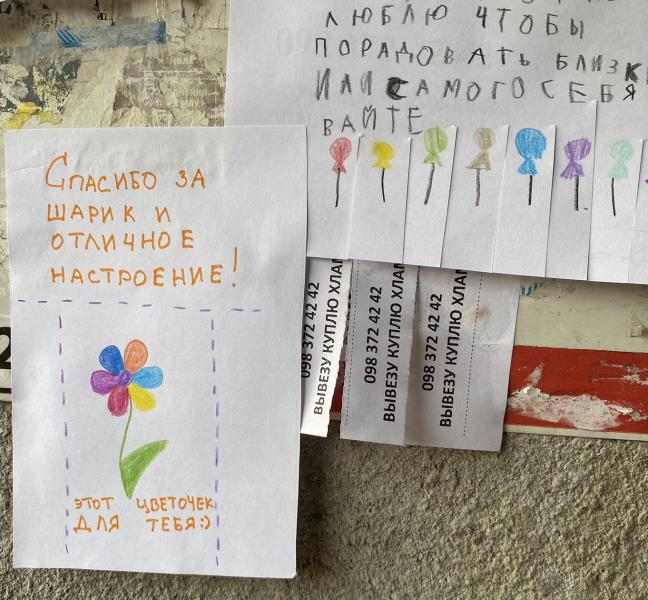 ЛЮБЛЮ ЧТОБЫ
ПОРАДОВАТЬ БЛИЗК
ИЛИ САМОГО СЕБЯ
ВАЙТЕ
СПАСИБО ЗА
ШАРИК И
ОТЛИЧНОЕ
НАСТРОЕНИЕ!
ЭТОТ ЦВЕТОЧЕК
ДЛЯ ТЕБЯ:)
098 372 42 42
ВЫВЕЗУ КУПЛЮ ХЛАМ
098 372 42 42
ВЫВЕЗУ КУПЛЮ ХЛАМ
098 372 42 42
ВЫВЕЗУ КУПЛЮ ХЛАМ